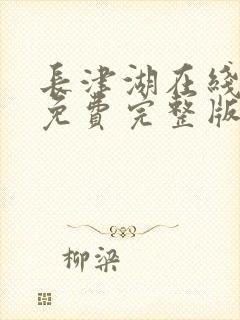 長津湖在綫
免費完整版
柳梁